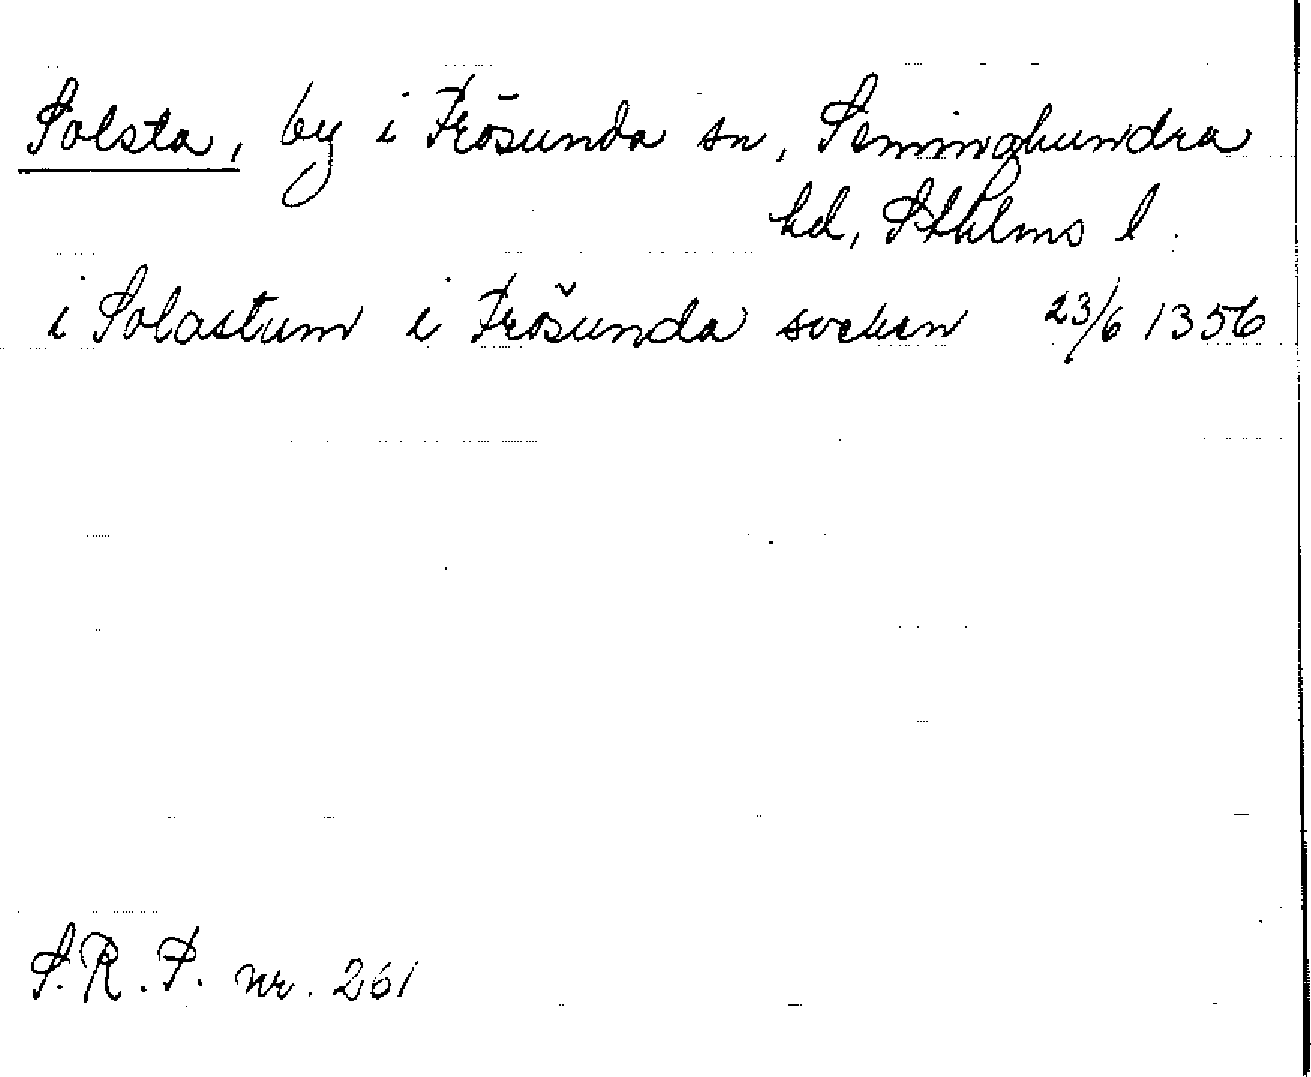 Solsta, by i Frösunda sn, Seminghundra
hd, Sthlms l.
i Solastum i Frösunda socken 23/6 1356
S.R.P. nr. 261